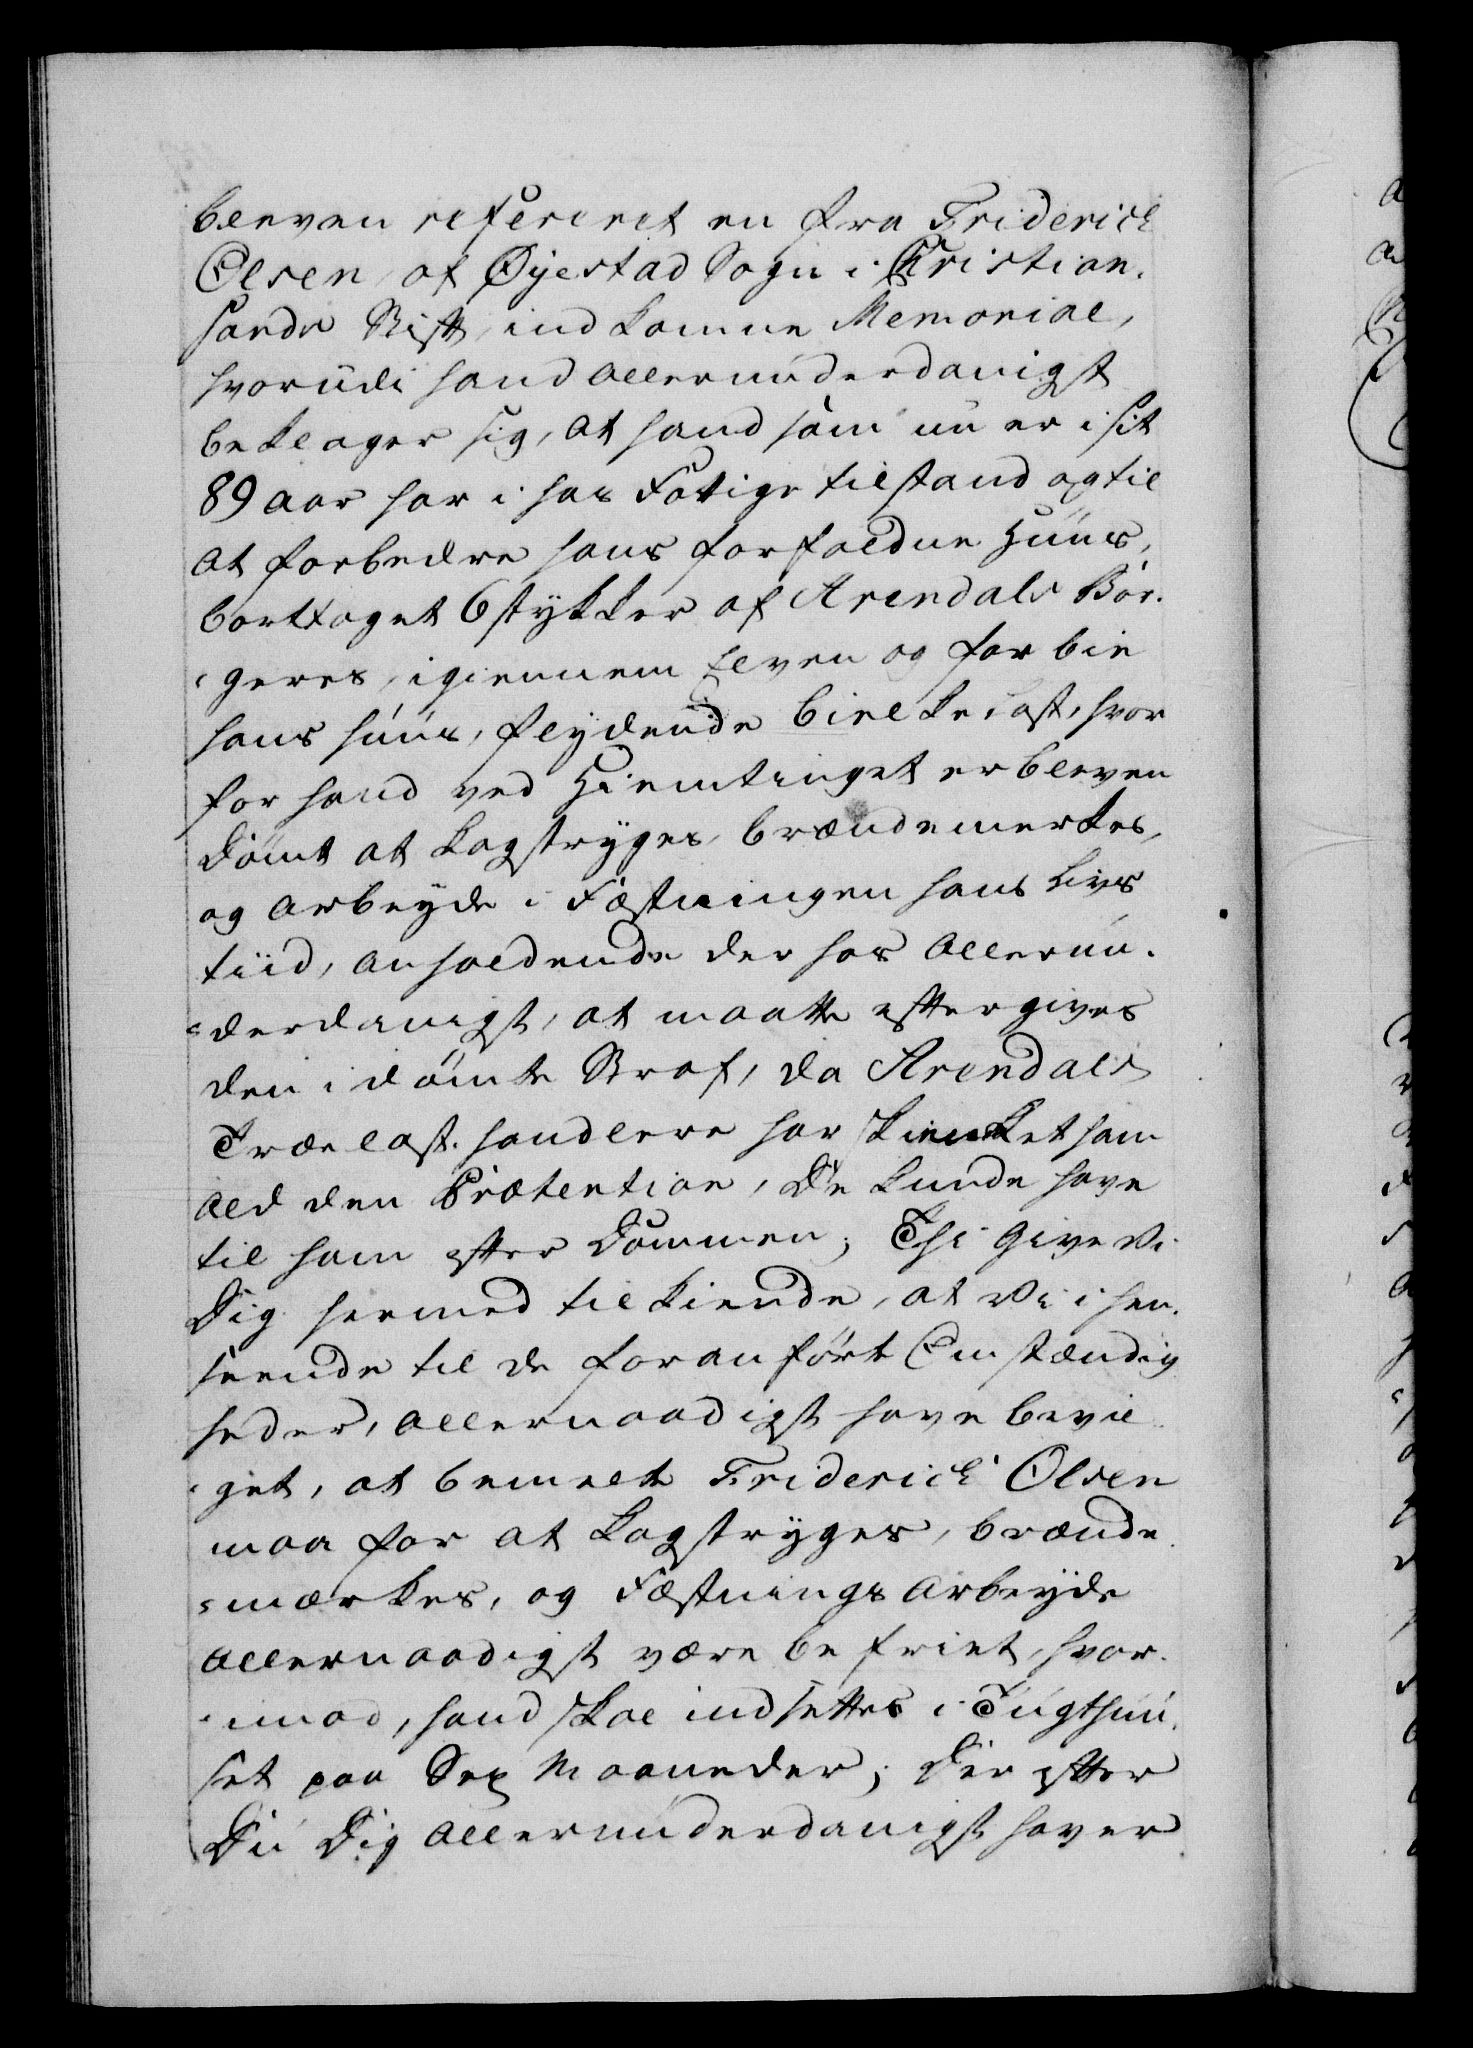 bleven refereret en fra Friderich
Olsen, af Øyestad Sogn i Christian-
sands Stift, indkomne Memorial,
hvorudi hand allerunderdanigst
beklager sig, at hand som nu er i sit
89 aar har i sin Fattige tilstand og til
at forbedre hans forfaldne Huus,
borttaget 6 stykker af Arendals Bør-
geres, igiennem Elven og forbie
hans huus, flydende Bielkelast, hvor
for hand ved Hiemtinget er bleven
dømt at Kagstryges, brændemerkes,
og arbeyde i Fæstningen hans Livs
tiid, anholdende derhos allerun-
derdanigst, at maatte eftergives
den idømte Straf, da Arendals
Trælast-handlere har skienket ham
ald den Prætention, de kunde have
til ham efter Dommen; Thi give Vi
Dig hermed tilkiende, at Vi i hen-
seende til de foranført Omstændig
heder, allernaadigst have bevil-
get, at bemelte Friderich Olsen
maa for at Kagstryges, brænde-
mærkes, og Fæstnings arbeyde
allernaadigst være befriet, hvor-
imod, hand skal indsættes i Tugthuu-
set paa Sex Maaneder; Der efter
Du Dig allerunderdanigst haver